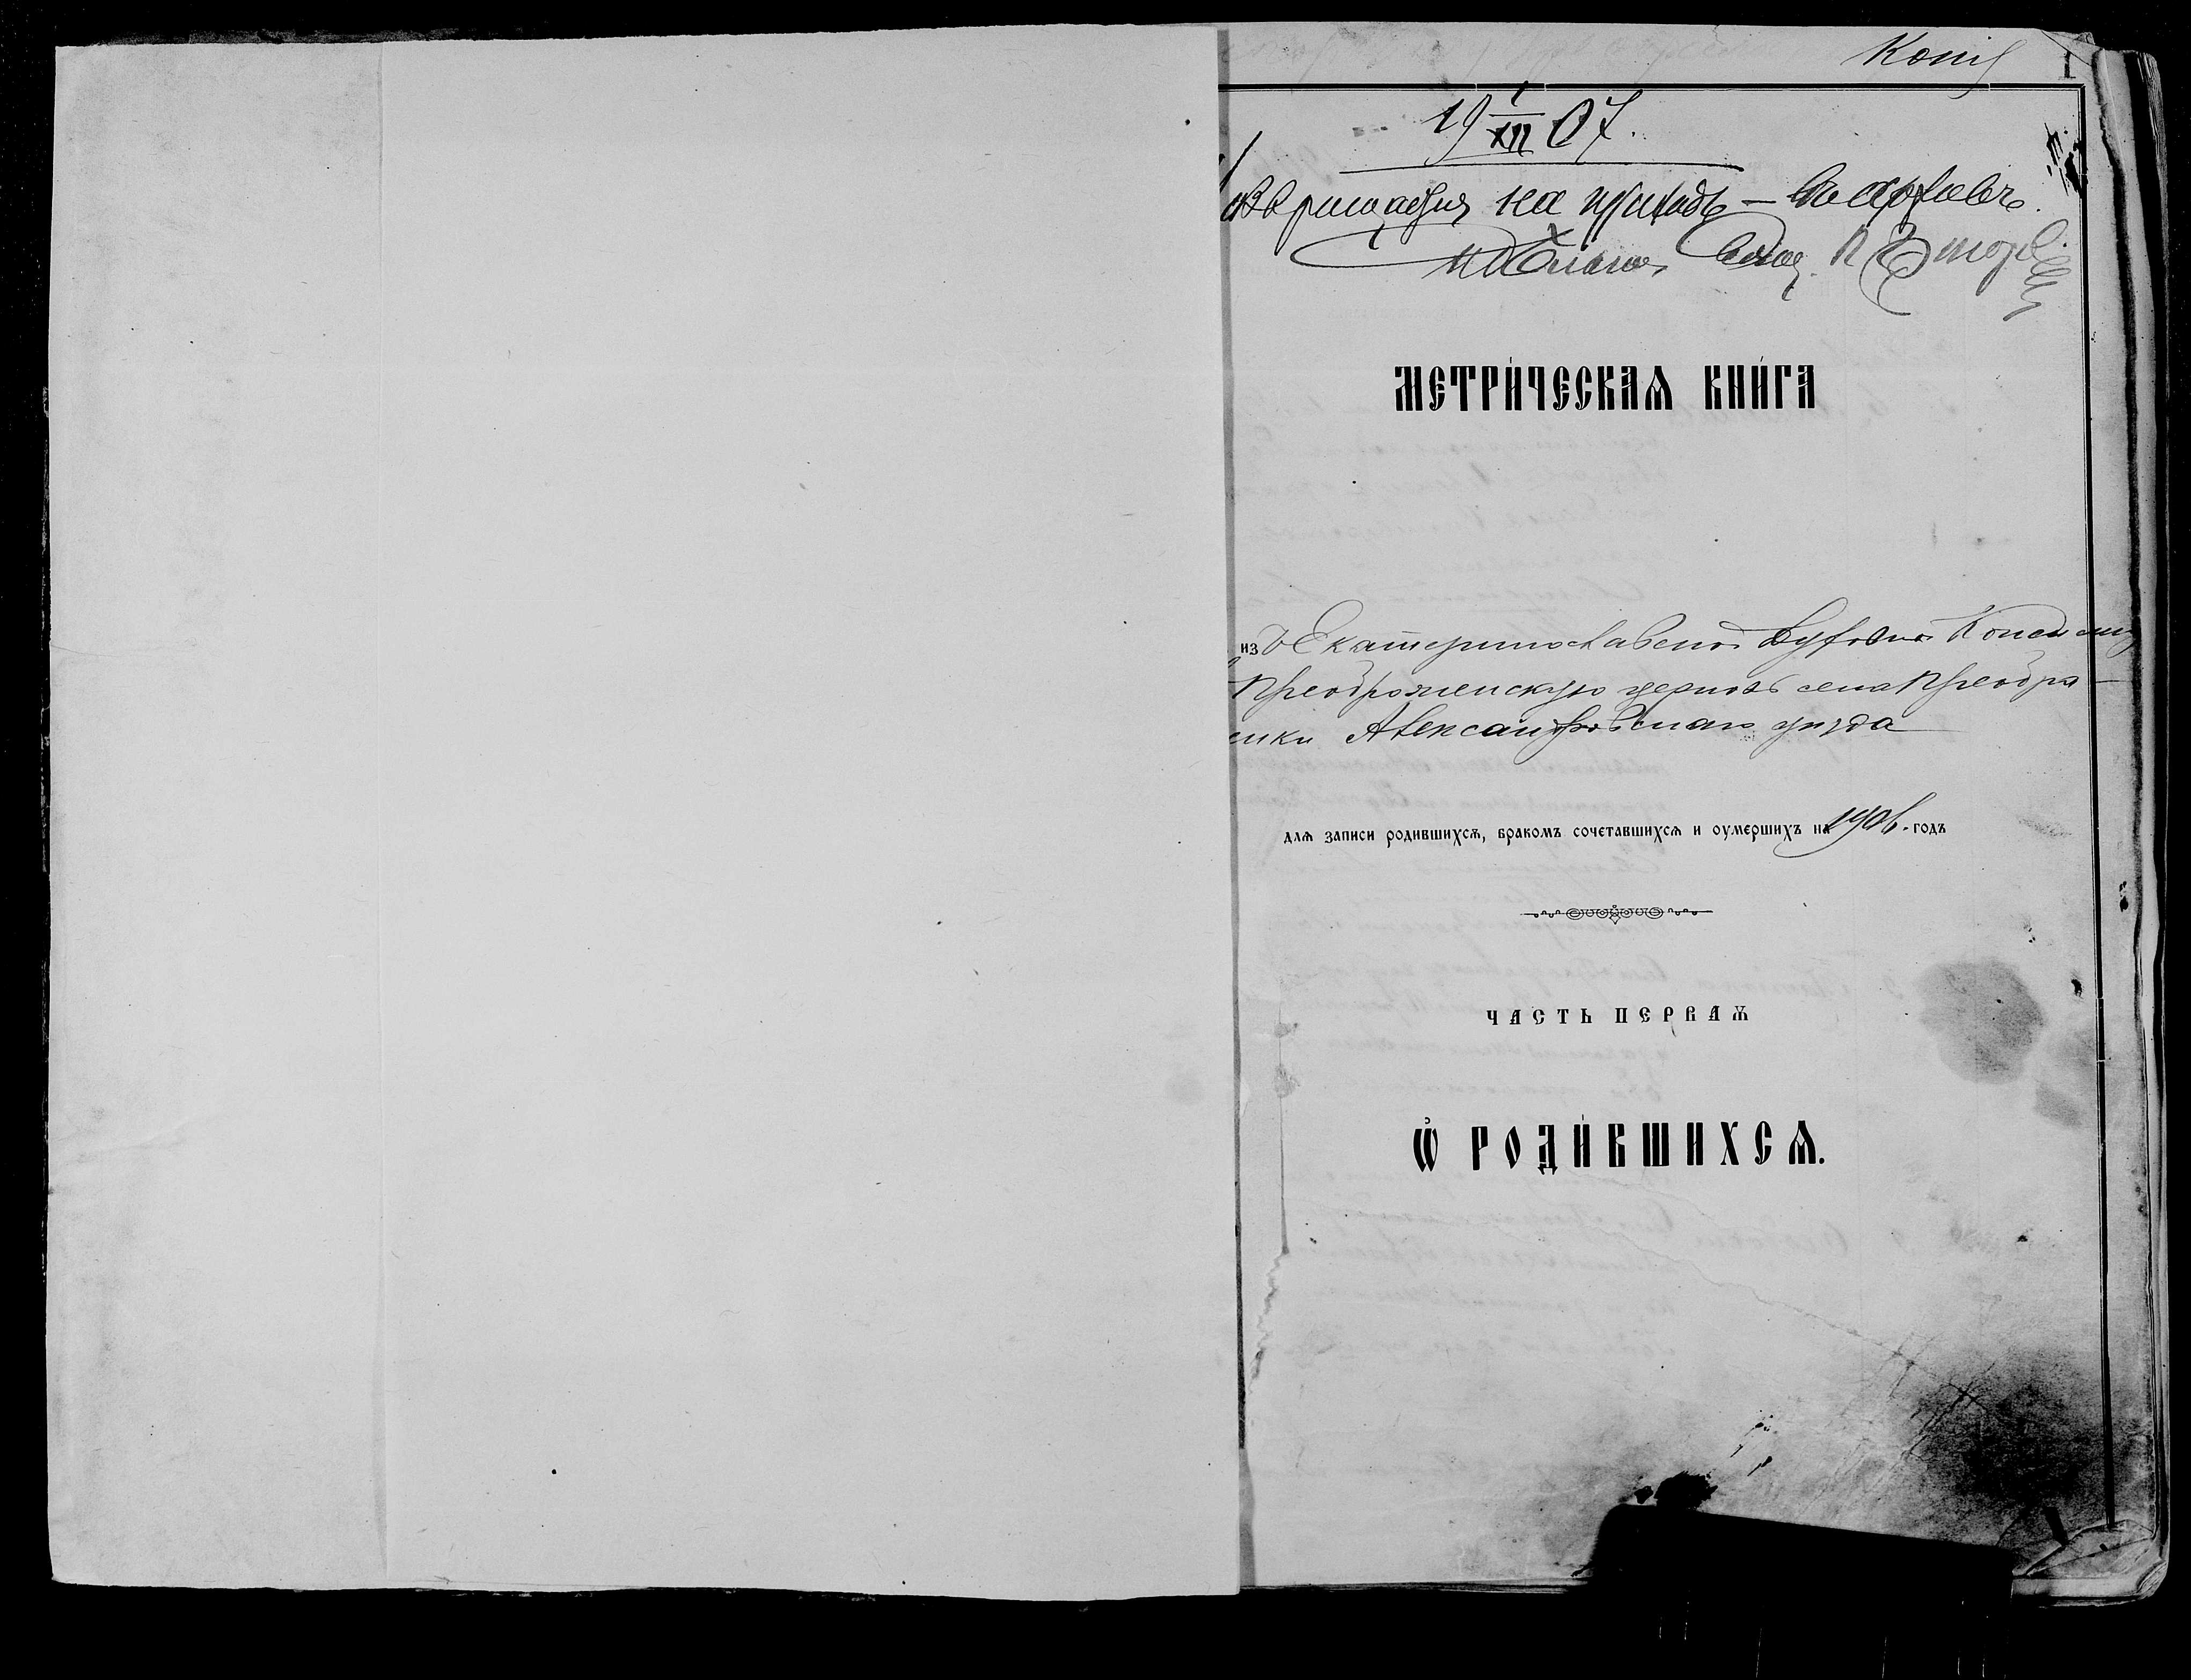 Копія
1
19 1/XII 07.
на приходъ — въ архивъ.
МЕТРИ́ЧЕСКАѦ КНИ́ГА
из Екатеринославской Духовной Консисторіи
Преображенскую церковь села Преобра-
енки Александровскаго уѣзда
длѧ записи родившихсѧ, бракомъ сочетавшихсѧ и оумєршихъ на 1906. годъ
ЧАСТЬ ПЕРВАѦ
Ѡ҆ РОДИ́ВШИХСѦ.